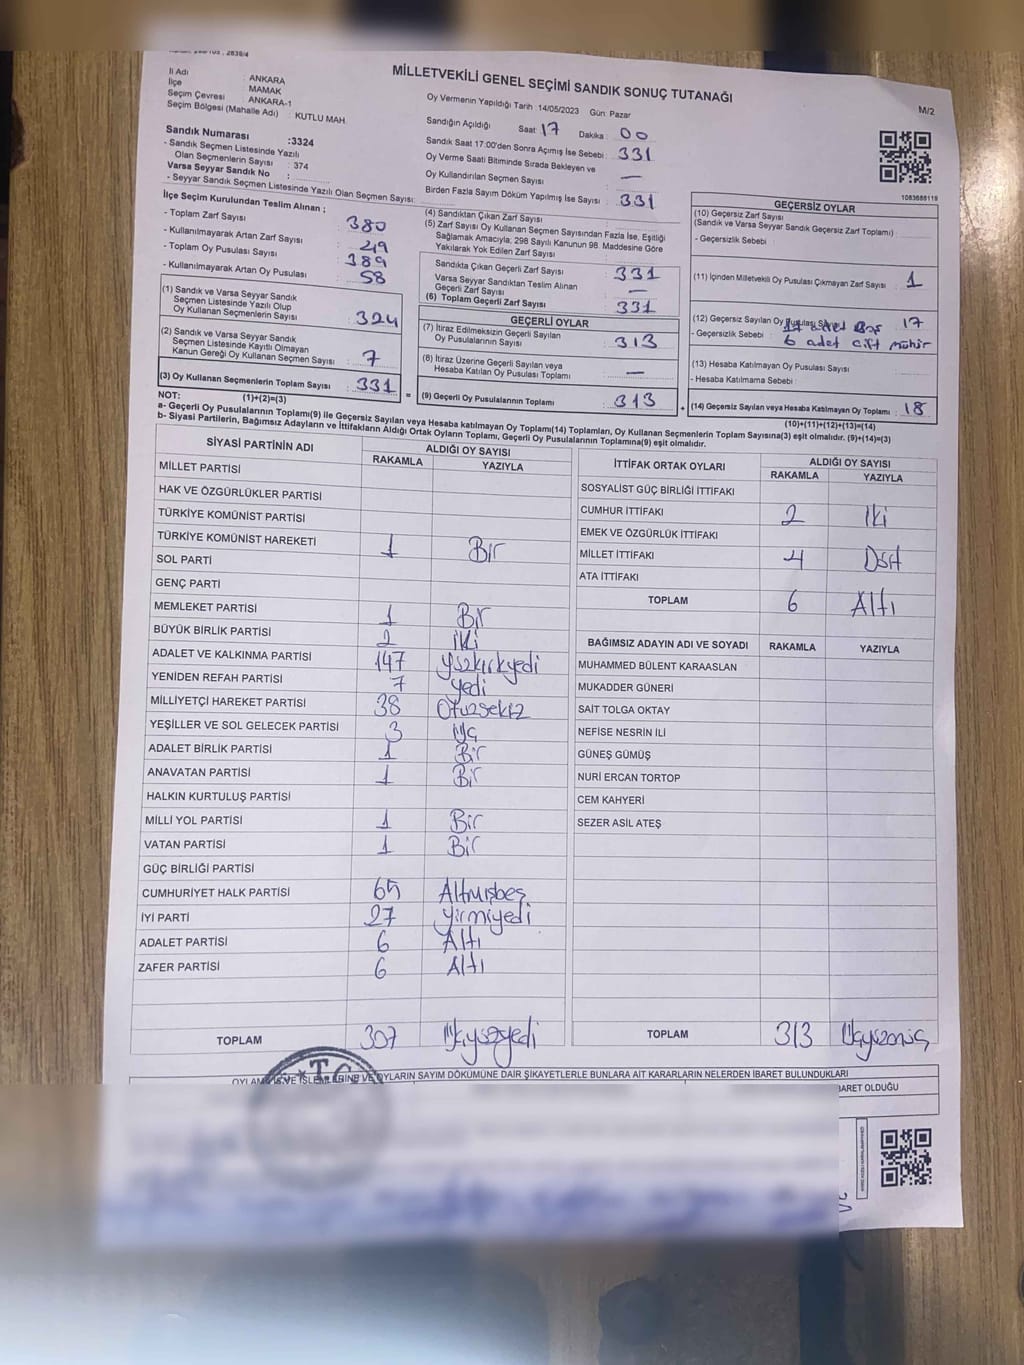 MİLLETVEKİLİ GENEL SEÇİMİ SANDIK SONUÇ TUTANAĞI
M/2
İl Adı : ANKARA
İlçe : MAMAK
Seçim Çevresi : ANKARA-1
Seçim Bölgesi (Mahalle Adı) : KUTLU MAH.
Sandık Numarası :3324
- Sandık Seçmen Listesinde Yazılı
Olan Seçmenlerin Sayısı : 374
Varsa Seyyar Sandık No :
- Seyyar Sandık Seçmen Listesinde Yazılı Olan Seçmen Sayısı:
Oy Vermenin Yapıldığı Tarih :14/05/2023 Gün: Pazar
Sandığın Açıldığı Saat : 17 Dakika : 00
Sandık Saat 17:00'den Sonra Açımış İse Sebebi : 331
Oy Verme Saati Bitiminde Sırada Bekleyen ve
Oy Kullandırılan Seçmen Sayısı : —
Birden Fazla Sayım Döküm Yapılmış İse Sayısı : 331
1083688119
İlçe Seçim Kurulundan Teslim Alınan ;
- Toplam Zarf Sayısı : 380
- Kullanılmayarak Artan Zarf Sayısı : 49
- Toplam Oy Pusulası Sayısı : 389
- Kullanılmayarak Artan Oy Pusulası : 58
(1) Sandık ve Varsa Seyyar Sandık
Seçmen Listesinde Yazılı Olup
Oy Kullanan Seçmenlerin Sayısı : 324
(2) Sandık ve Varsa Seyyar Sandık
Seçmen Listesinde Kayıtlı Olmayan
Kanun Gereği Oy Kullanan Seçmen Sayısı : 7
(3) Oy Kullanan Seçmenlerin Toplam Sayısı : 331
(1)+(2)=(3)
(4) Sandıktan Çıkan Zarf Sayısı :
(5) Zarf Sayısı Oy Kullanan Seçmen Sayısından Fazla İse, Eşitliği
Sağlamak Amacıyla; 298 Sayılı Kanunun 98. Maddesine Göre
Yakılarak Yok Edilen Zarf Sayısı :
Sandıkta Çıkan Geçerli Zarf Sayısı : 331
Varsa Seyyar Sandıktan Teslim Alınan
Geçerli Zarf Sayısı : —
(6) Toplam Geçerli Zarf Sayısı : 331
GEÇERLİ OYLAR
(7) İtiraz Edilmeksizin Geçerli Sayılan
Oy Pusulalarının Sayısı : 313
(8) İtiraz Üzerine Geçerli Sayılan veya
Hesaba Katılan Oy Pusulası Toplamı : —
(9) Geçerli Oy Pusulalarının Toplamı : 313
GEÇERSİZ OYLAR
(10) Geçersiz Zarf Sayısı
(Sandık ve Varsa Seyyar Sandık Geçersiz Zarf Toplamı) :
- Geçersizlik Sebebi :
(11) İçinden Milletvekili Oy Pusulası Çıkmayan Zarf Sayısı : 1
(12) Geçersiz Sayılan Oy Pusulası Sayısı : 17
- Geçersizlik Sebebi : adet Boş
6 adet çift mühür
(13) Hesaba Katılmayan Oy Pusulası Sayısı :
- Hesaba Katılmama Sebebi :
(14) Geçersiz Sayılan veya Hesaba Katılmayan Oy Toplamı : 18
(10)+(11)+(12)+(13)=(14)
NOT:
a- Geçerli Oy Pusulalarının Toplamı(9) ile Geçersiz Sayılan veya Hesaba Katılmayan Oy Toplamı(14) Toplamları, Oy Kullanan Seçmenlerin Toplam Sayısına(3) eşit olmalıdır. (9)+(14)=(3)
b- Siyasi Partilerin, Bağımsız Adayların ve İttifakların Aldığı Ortak Oyların Toplamı, Geçerli Oy Pusulalarının Toplamına(9) eşit olmalıdır.
SİYASİ PARTİNİN ADI ALDIĞI OY SAYISI
RAKAMLA YAZIYLA
MİLLET PARTİSİ
HAK VE ÖZGÜRLÜKLER PARTİSİ
TÜRKİYE KOMÜNİST PARTİSİ
TÜRKİYE KOMÜNİST HAREKETİ 1 Bir
SOL PARTİ
GENÇ PARTİ
MEMLEKET PARTİSİ 1 Bir
BÜYÜK BİRLİK PARTİSİ 2 iki
ADALET VE KALKINMA PARTİSİ 147 yüzkırkyedi
YENİDEN REFAH PARTİSİ 7 yedi
MİLLİYETÇİ HAREKET PARTİSİ 38 Otuzsekiz
YEŞİLLER VE SOL GELECEK PARTİSİ 3 üç
ADALET BİRLİK PARTİSİ 1 Bir
ANAVATAN PARTİSİ 1 Bir
HALKIN KURTULUŞ PARTİSİ
MİLLİ YOL PARTİSİ 1 Bir
VATAN PARTİSİ 1 Bir
GÜÇ BİRLİĞİ PARTİSİ
CUMHURİYET HALK PARTİSİ 65 Altmışbeş
İYİ PARTİ 27 yirmiyedi
ADALET PARTİSİ 6 Altı
ZAFER PARTİSİ 6 Altı
TOPLAM 307 Üçyüzyedi
İTTİFAK ORTAK OYLARI ALDIĞI OY SAYISI
RAKAMLA YAZIYLA
SOSYALİST GÜÇ BİRLİĞİ İTTİFAKI
CUMHUR İTTİFAKI 2 İki
EMEK VE ÖZGÜRLÜK İTTİFAKI
MİLLET İTTİFAKI 4 Dört
ATA İTTİFAKI
TOPLAM 6 Altı
BAĞIMSIZ ADAYIN ADI VE SOYADI RAKAMLA YAZIYLA
MUHAMMED BÜLENT KARAASLAN
MUKADDER GÜNERİ
SAİT TOLGA OKTAY
NEFİSE NESRİN İLİ
GÜNEŞ GÜMÜŞ
NURİ ERCAN TORTOP
CEM KAHYERİ
SEZER ASİL ATEŞ
TOPLAM 313 Üçyüzonüç
T.C.
OYLAMA VE İŞLEMLERİNE VE OYLARIN SAYIM DÖKÜMÜNE DAİR ŞİKAYETLERLE BUNLARA AİT KARARLARIN NELERDEN İBARET BULUNDUKLARI
BARET OLDUĞU